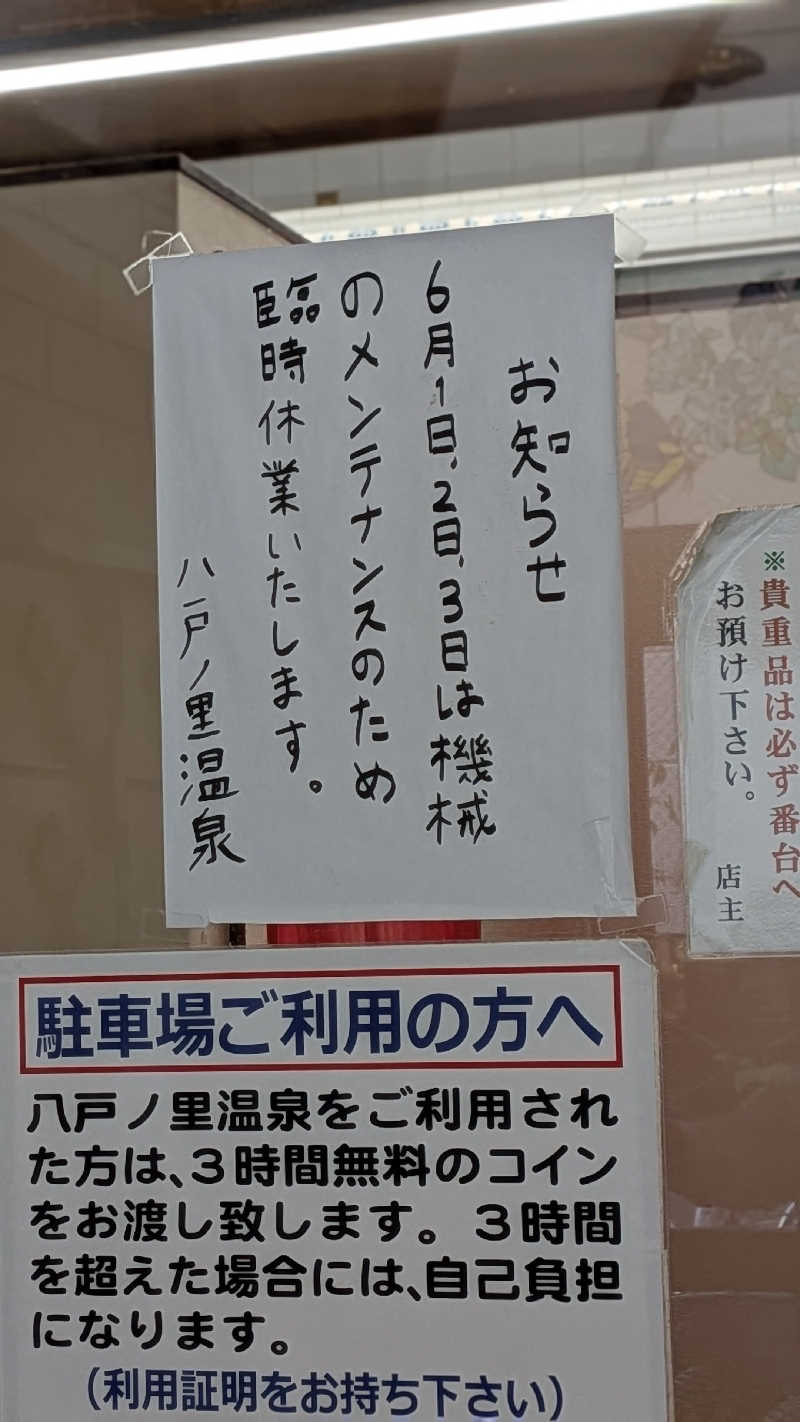 お知らせ
6月1日、2日、3日は機械
のメンテナンスのため
臨時休業いたします。
八戸ノ里温泉
※貴重品は必ず番台へ
お預け下さい。
店主
駐車場ご利用の方へ
八戸ノ里温泉をご利用され
た方は、３時間無料のコイン
をお渡し致します。３時間
を超えた場合には、自己負担
になります。
（利用証明をお持ち下さい）